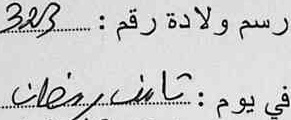 رسم ولادة رقم : 323
في يوم : ثامن رمضان